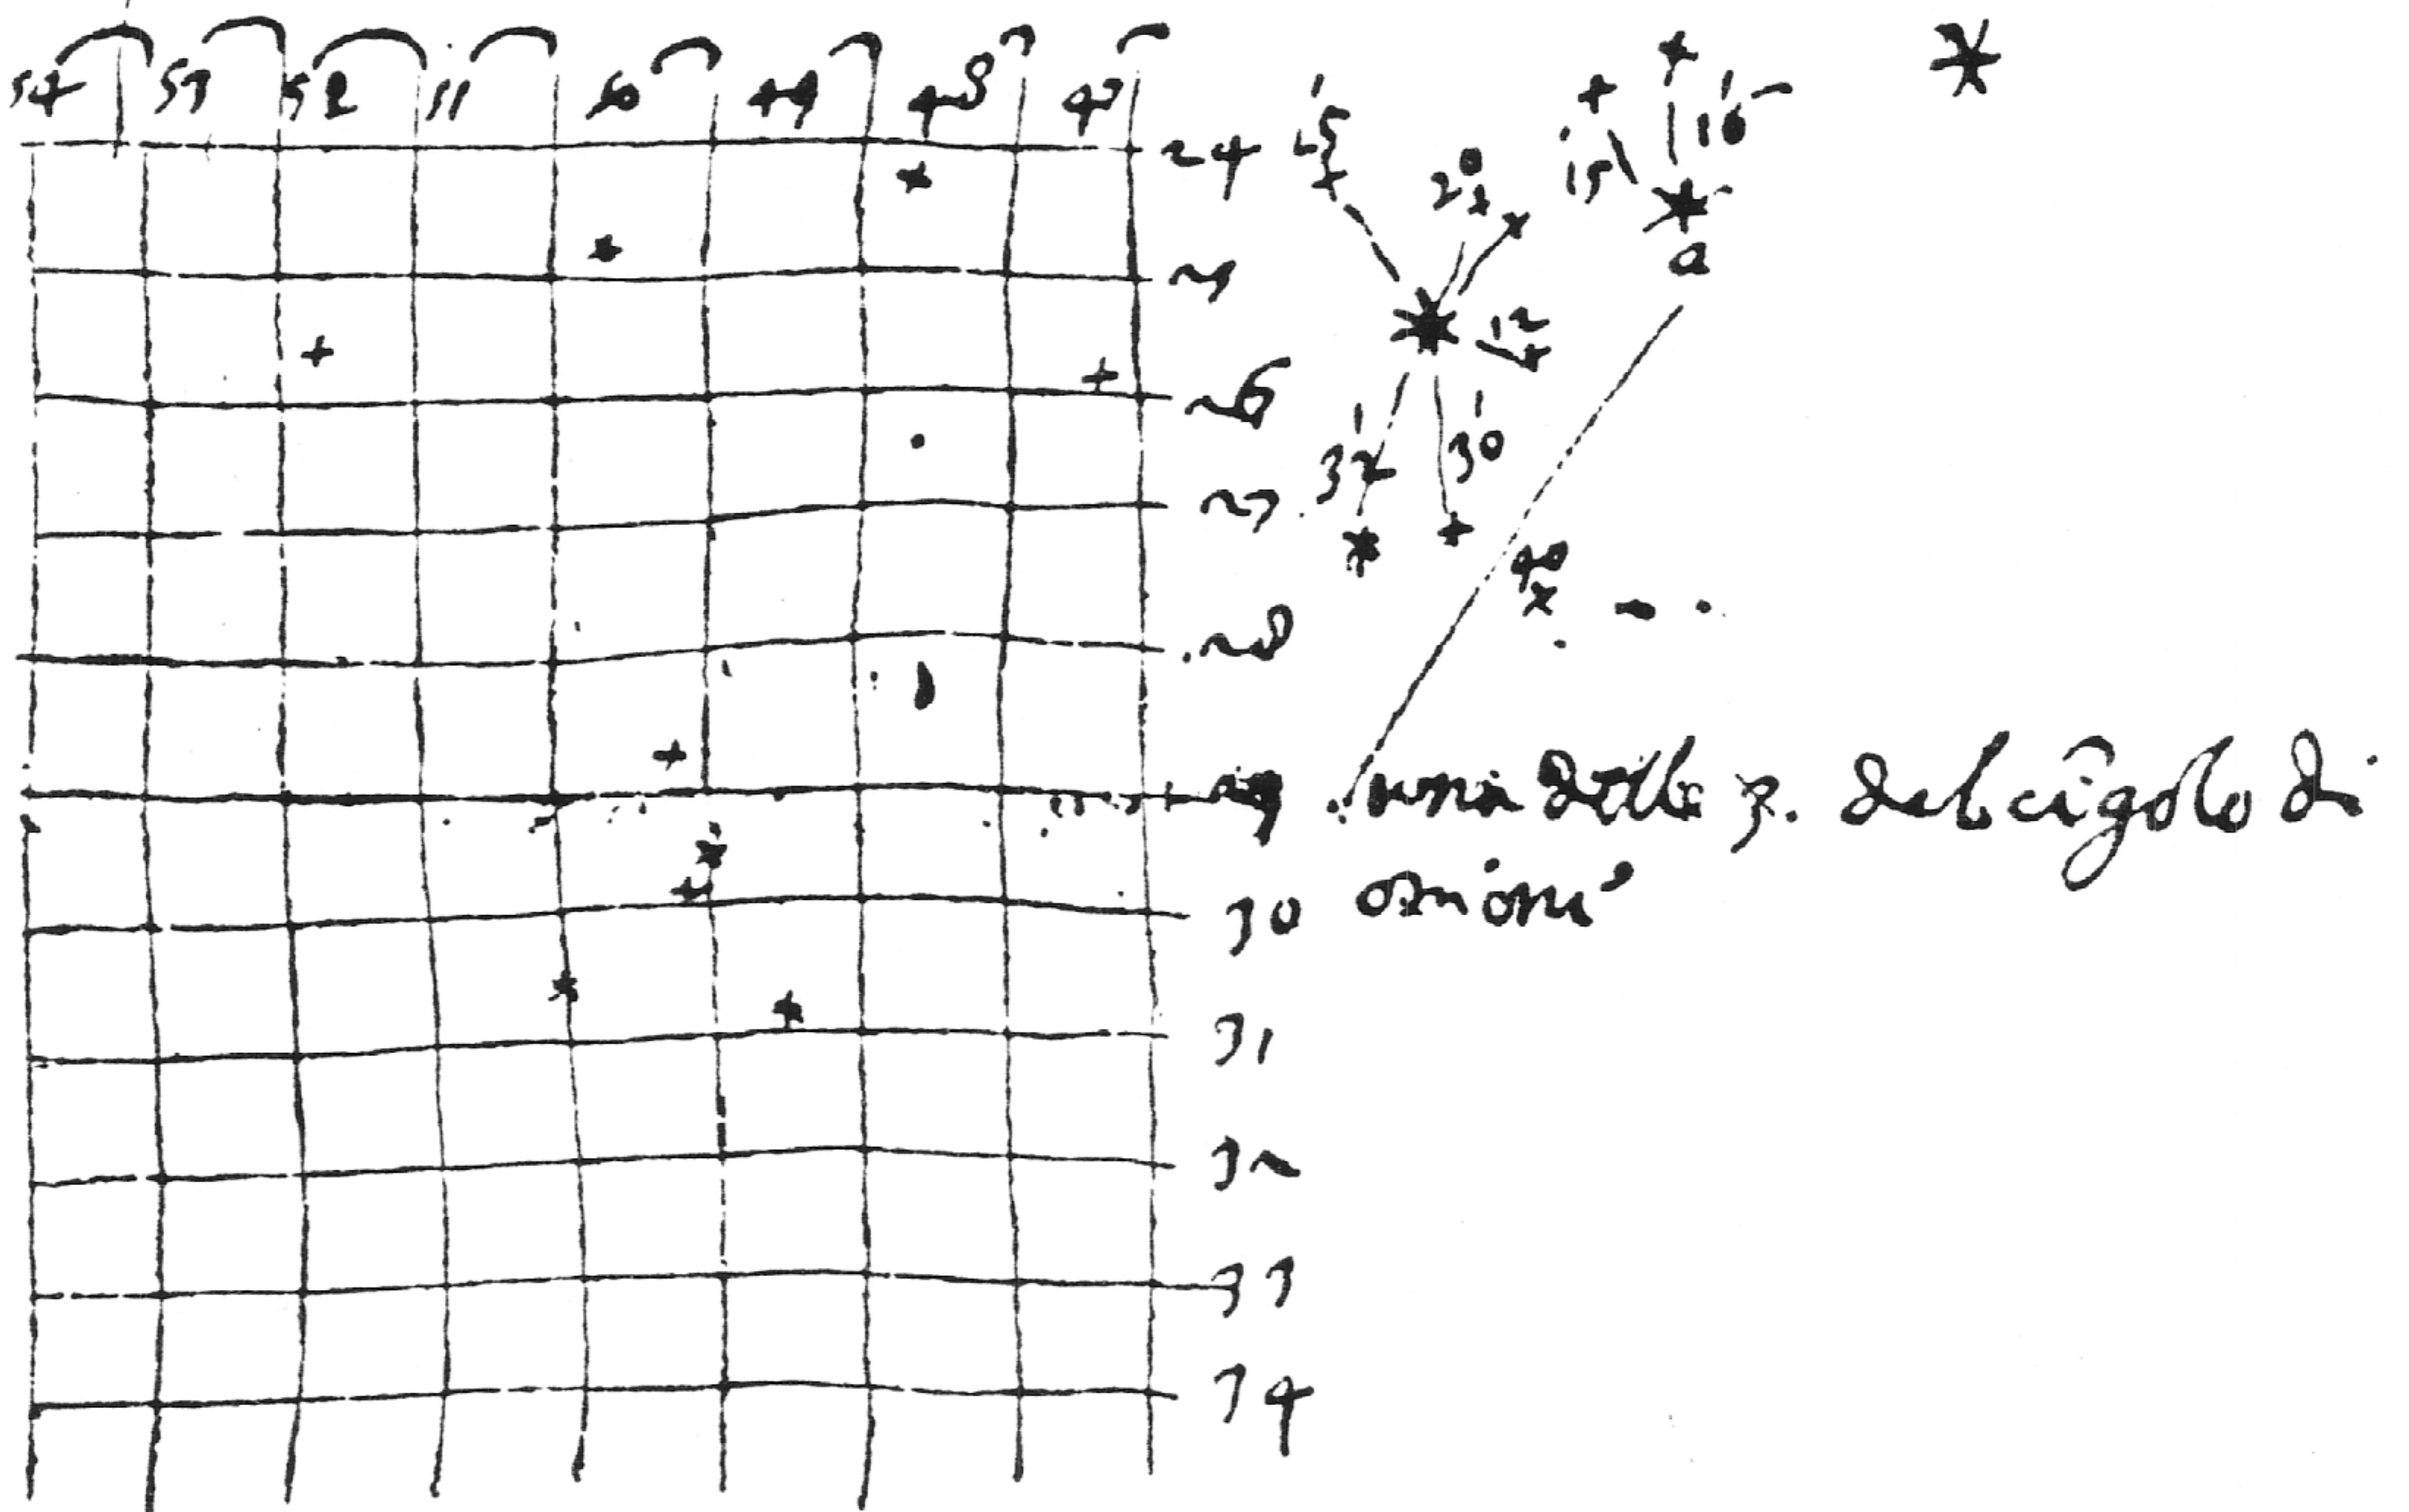 54 53 52 51 50 49 48 47
24
25
26
27
28
29
30
31
32
33
34
15
20
15 16
a
12
32 30
40
una delle 3. del cĩgolo di
orione